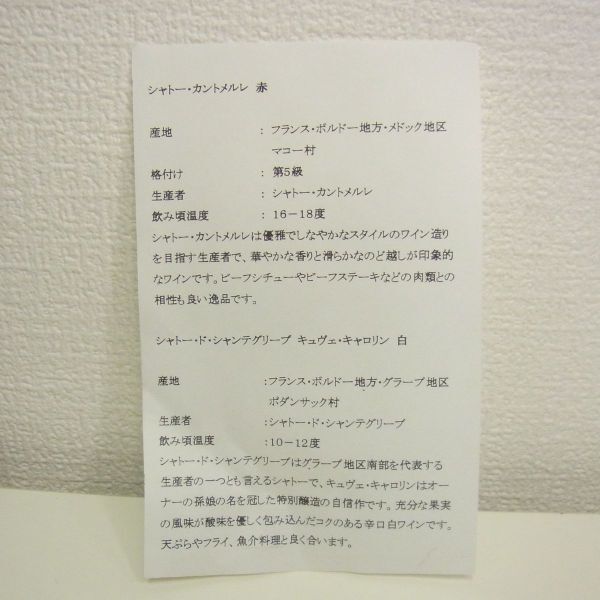 シャトー・カントメルレ 赤
産地 : フランス・ボルドー地方・メドック地区
マコー村
格付け : 第5級
生産者 : シャトー・カントメルレ
飲み頃温度 : 16－18度
シャトー・カントメルレは優雅でしなやかなスタイルのワイン造り
を目指す生産者で、華やかな香りと滑らかなのど越しが印象的
なワインです。ビーフシチューやビーフステーキなどの肉類との
相性も良い逸品です。
シャトー・ド・シャンテグリーブ キュヴェ・キャロリン 白
産地 :フランス・ボルドー地方・グラーブ地区
ポダンサック村
生産者 :シャトー・ド・シャンテグリーブ
飲み頃温度 :10－12度
シャトー・ド・シャンテグリーブはグラーブ地区南部を代表する
生産者の一つとも言えるシャトーで、キュヴェ・キャロリンはオー
ナーの孫娘の名を冠した特別醸造の自信作です。充分な果実
の風味が酸味を優しく包み込んだコクのある辛口白ワインです。
天ぷらやフライ、魚介料理と良く合います。